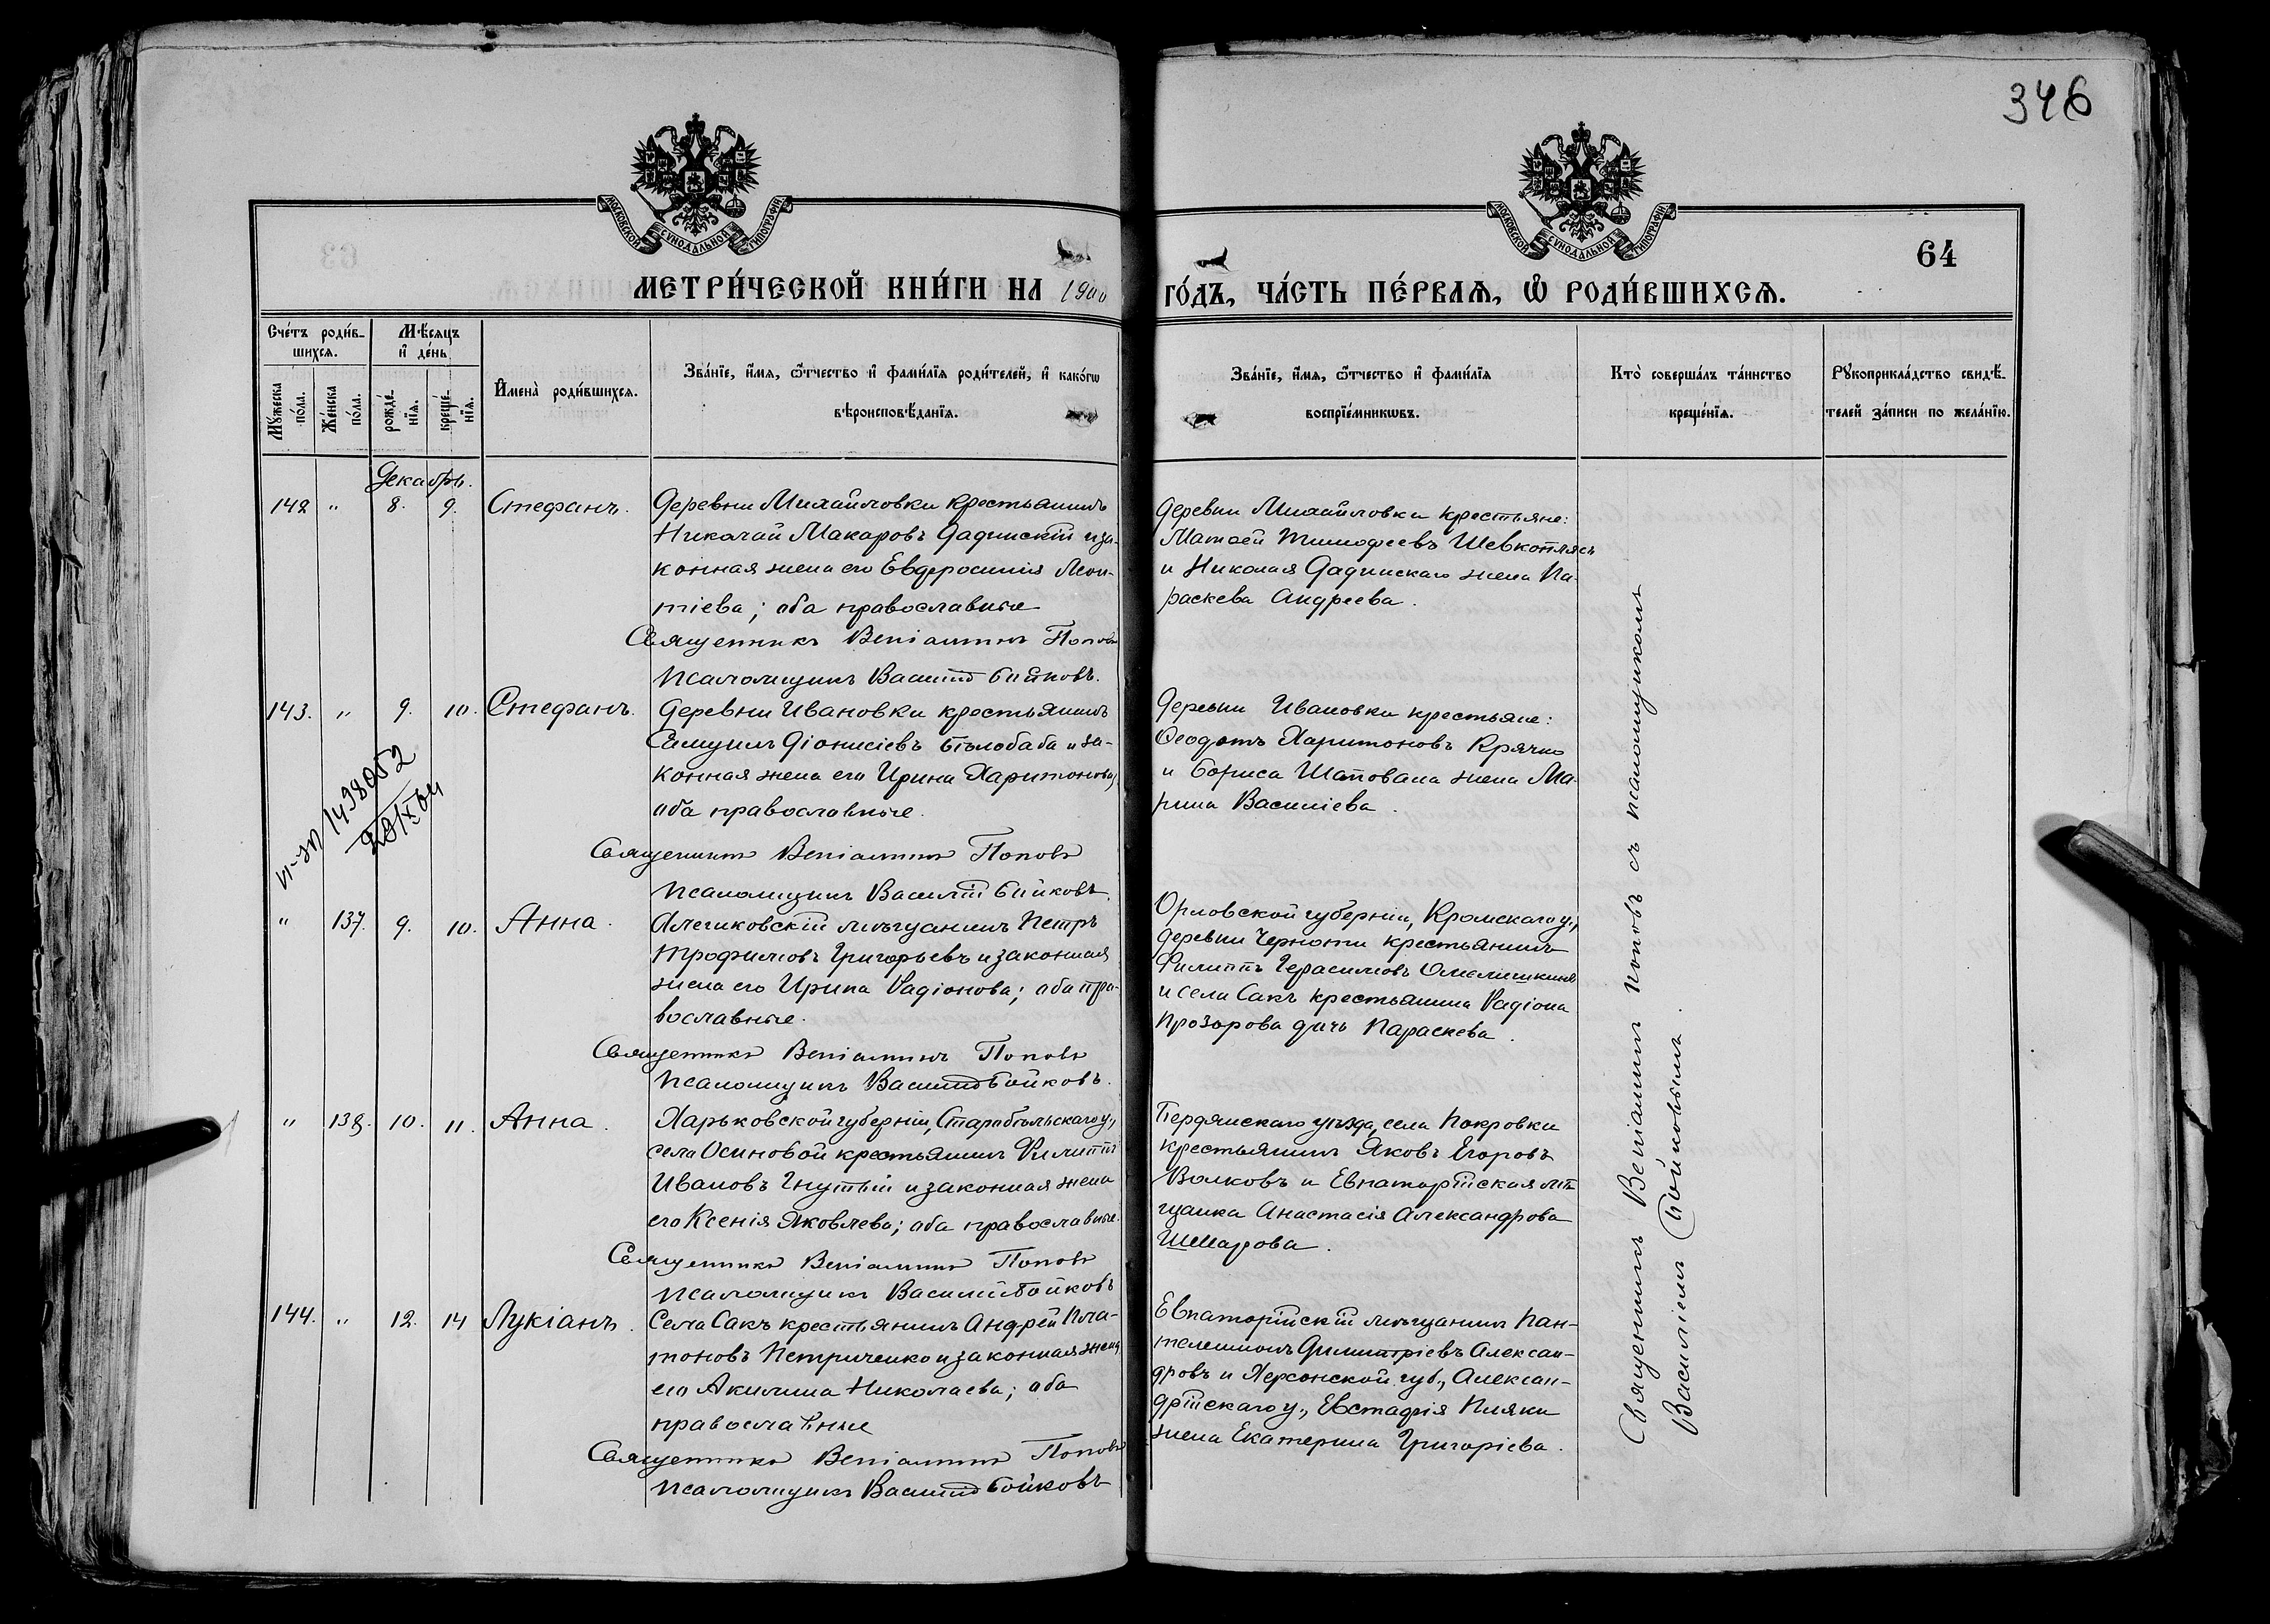 346
МОСКОВСКОЙ СУНОДАЛЬНОЙ ТИПОГРАФІИ
МОСКОВСКОЙ СУНОДАЛЬНОЙ ТИПОГРАФІИ
64
МЕТРИ́ЧЕСКОЙ КНИ́ГИ НА 1900
ГО́ДЪ, ЧА́СТЬ ПЕ́РВАѦ, Ѿ РОДИ́ВШИХСѦ.
Сче́тъ роди́в-
шихсѧ.
Мѣ́сяцъ
и҆ де́нь
Мꙋ́жеска
по́ла.
Же́нска
по́ла.
рожде́-
нїѧ.
креще́-
нїѧ.
И҆мена̀ роди́вшихсѧ.
Зва́нїе, и҆́мѧ, ѻ҆́тчество и҆ фами́лїѧ роди́телей, и҆ како́гѡ
вѣроисповѣ́данїѧ.
Зва́нїе, и҆́мѧ, ѻ҆́тчество и҆ фами́лїѧ
воспрїе́мникѡвъ.
Кто̀ соверша́лъ та́инство
креще́нїѧ.
Рꙋкоприкла́дство свидѣ́-
телей за́писи по жела́нїю.
Декабрь.
142 " 8. 9. Стефанъ.
Деревни Михайловки крестьянинъ
Николай Макаровъ Дадинскій и за-
конная жена его Евфросинія Леон-
тіева; оба православные
Священникъ Веніаминъ Поповъ
Псаломщикъ Василій Бойковъ.
Деревни Михайловки крестьяне:
Матѳей Тимофеевъ Шевкоплясъ
и Николая Дадинскаго жена Па-
раскева Андреева.
143. " 9. 10. Стефанъ.
Деревни Ивановки крестьянинъ
Самуилъ Діонисіевъ Бѣлобаба и за-
конная жена его Ирина Харитонова,
оба православные.
Священникъ Веніаминъ Поповъ
Псаломщикъ Василій Бойковъ.
Деревни Ивановки крестьяне:
Ѳеодотъ Харитоновъ Крячко
и Бориса Шаповала жена Ма-
рина Василіева.
1498052
" 137. 9. 10. Анна.
Алешковскій мѣщанинъ Петръ
Трофимовъ Григорьевъ и законная
жена его Ирина Радіонова; оба пра-
вославные.
Священникъ Веніаминъ Поповъ
Псаломщикъ Василій Бойковъ.
Орловской губерніи, Кромскаго у.,
деревни крестьянинъ
Филиппъ Герасимовъ Омелишкинъ
и села Сакъ крестьянина Радіона
Прозорова дочь Параскева.
" 138. 10. 11. Анна.
Харьковской губерніи, Старобѣльскаго у.,
села Осиновой крестьянинъ Филиппъ
Ивановъ Гнутый и законная жена
его Ксенія Яковлева; оба православные.
Священникъ Веніаминъ Поповъ
Псаломщикъ Василій Бойковъ
Бердянскаго уѣзда, села Покровки
крестьянинъ Яковъ Егоровъ
Волковъ и Евпаторійская мѣ-
щанка Анастасія Александрова
Шмарова.
144. " 12. 14 Лукіанъ.
Села Сакъ крестьянинъ Андрей Пла-
тоновъ Петриченко и законная жена
его Акилина Николаева; оба
православные
Священникъ Веніаминъ Поповъ
Псаломщикъ Василій Бойковъ
Евпаторійскій мѣщанинъ Пан-
телеимонъ Димитріевъ Алексан-
дровъ и Херсонской губ., Алексан-
дрійскаго у., Евстафія Пляки
жена Екатерина Григоріева.
Священникъ Веніаминъ Поповъ съ псаломщикомъ
Василіемъ Бойковымъ.